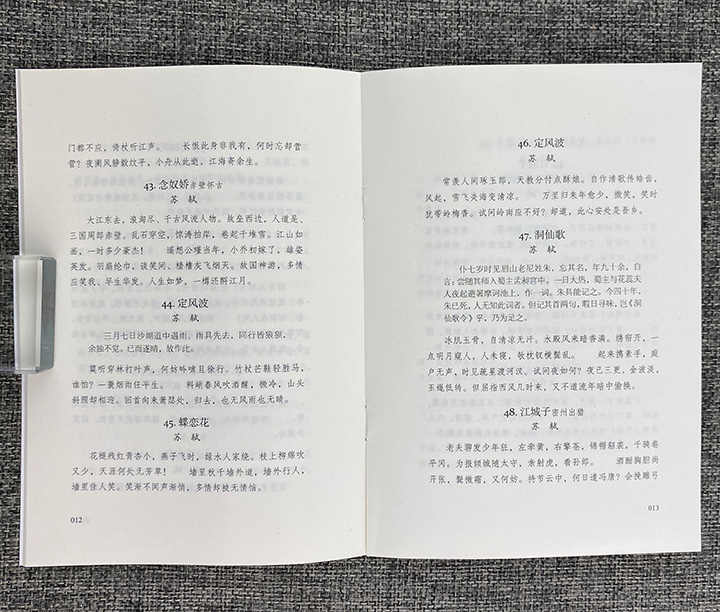 门都不应，倚杖听江声。　　长恨此身非我有，何时忘却营
营？夜阑风静縠纹平，小舟从此逝，江海寄余生。
43. 念奴娇 赤壁怀古
苏　轼
大江东去，浪淘尽、千古风流人物。故垒西边，人道是、
三国周郎赤壁。乱石穿空，惊涛拍岸，卷起千堆雪。江山如
画，一时多少豪杰！　　遥想公瑾当年，小乔初嫁了，雄姿
英发。羽扇纶巾，谈笑间、樯橹灰飞烟灭。故国神游，多情
应笑我、早生华发。人生如梦，一樽还酹江月。
44. 定风波
苏　轼
三月七日沙湖道中遇雨，雨具先去，同行皆狼狈，
余独不觉。已而遂晴，故作此。
莫听穿林打叶声，何妨吟啸且徐行。竹杖芒鞋轻胜马，
谁怕？一蓑烟雨任平生。　　料峭春风吹酒醒，微冷，山头
斜照却相迎。回首向来萧瑟处，归去，也无风雨也无晴。
45. 蝶恋花
苏　轼
花褪残红青杏小，燕子飞时，绿水人家绕。枝上柳绵吹
又少，天涯何处无芳草！　　墙里秋千墙外道，墙外行人，
墙里佳人笑。笑渐不闻声渐悄，多情却被无情恼。
012
46. 定风波
苏　轼
常羡人间琢玉郎，天教分付点酥娘。自作清歌传皓齿，
风起，雪飞炎海变清凉。　　万里归来年愈少，微笑，笑时
犹带岭梅香。试问岭南应不好？却道，此心安处是吾乡。
47. 洞仙歌
苏　轼
仆七岁时见眉山老尼姓朱，忘其名，年九十余，自
言：尝随其师入蜀主孟昶宫中。一日大热，蜀主与花蕊夫
人夜起避暑摩诃池上，作一词。朱具能记之。今四十年，
朱已死，人无知此词者。但记其首两句，暇日寻味，岂《洞
仙歌令》乎，乃为足之。
冰肌玉骨，自清凉无汗。水殿风来暗香满。绣帘开，一
点明月窥人，人未寝，攲枕钗横鬓乱。　　起来携素手，庭
户无声，时见疏星渡河汉。试问夜如何？夜已三更，金波淡，
玉绳低转。但屈指西风几时来，又不道流年暗中偷换。
48. 江城子 密州出猎
苏　轼
老夫聊发少年狂，左牵黄，右擎苍，锦帽貂裘，千骑卷
平冈。为报倾城随太守，亲射虎，看孙郎。　　酒酣胸胆尚
开张，鬓微霜，又何妨。持节云中，何日遣冯唐？会挽雕弓
013